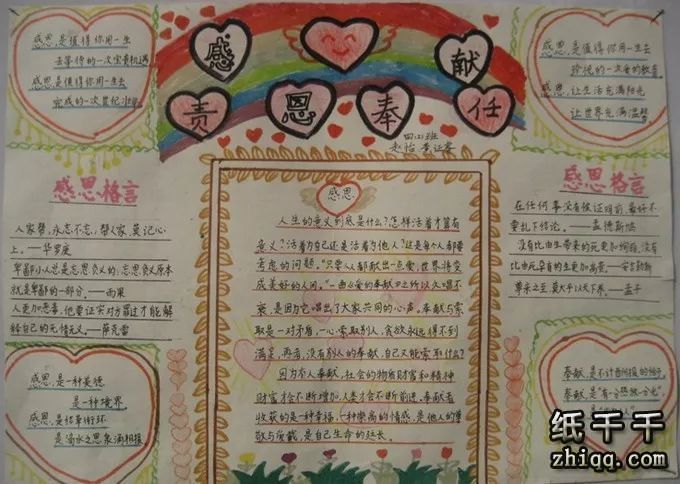 感恩,是值得你用一生
去等待的一次宝贵机遇
感恩,是值得你用一生去
完成的一次世纪
感 献
责 恩 奉 任
四(二)班
感恩,是值得你用一生去
珍视的一次爱的教育
感恩,让生活充满阳光
让世界充满温馨
感恩格言
人家帮,永志不忘;帮人家,莫记心
上。——华罗庚
卑鄙小人总是忘恩负义的,忘恩负义原本
就是卑鄙的一部分。——雨果
感恩
人生的意义到底是什么?怎样活着才算有
意义?活着为自己还是活着为他人?这是每个人都要
考虑的问题。“只要人人都献出一点爱,世界将变
成美好的人间。”一曲《爱的奉献》之所以久唱不
衰,是因为它唱出了大家共同的心声。奉献与索
取是一对矛盾,一心索取别人,贪欲永远得不到
满足,再者,没有别人的奉献,自己又能索取什么?
因为有人奉献,社会的物质财富和精神
财富才会不断增加,人类才会不断前进。奉献者
收获的是一种幸福,一种崇高的情感,是他人的尊
敬与爱戴,是自己生命的延长。
感恩格言
在任何事没有被证明前,最好不
要乱下结论。——孟德斯鸠
没有比由生带来的死更加绚丽,没有
尊亲之至,莫大乎以天下养。——孟子
感恩,是一种美德
是一种境界
感恩,是结草衔环
是滴水之恩涌泉相报
奉献,是不计
奉献,是“有一分热发一分光”
纸千千
zhiqq.com